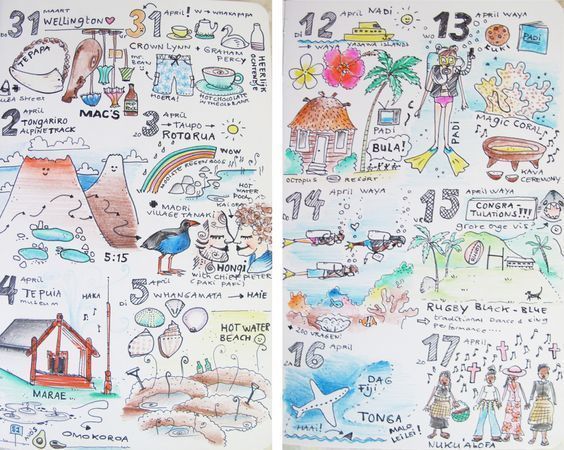 Di 31 MAART
WELLINGTON
TEPAPA
CUBA STREET
MAC'S
MR. BEAN
31 APRIL! → WHAKAPAPA
CROWN LYNN + GRAHAM PERCY
HOERA!
HOT CHOCOLATE
HEERLIJK
2 April
TONGARIRO
ALPINE TRACK
5:15
3 APRIL
→ TAUPO →
ROTORUA
WOW
MAORI VILLAGE TAMAKI
HOT WATER POOL
HONGI
WITH CHIEF PIETER
4 April
TE PUIA
MUSEUM
HAKA
MARAE...
OMOKOROA
5 April
Di
WHANGAMATA → HAÏE
HOT WATER BEACH
12 APRIL NADI
Zo
→ WAYA YASAWA ISLANDS
PADI
BULA!
OCTOPUS RESORT
13 APRIL WAYA
PADI
PADI
MAGIC CORAL
KAVA CEREMONY
14 April WAYA
Di
200 VRAGEN
15 APRIL WAYA
CONGRATULATIONS!!!
grote oge vis!
H
RUGBY BLACK-BLUE
→ traditional Dance & sing performance....
16 APRIL
DAG Fiji
TONGA
MALO LEILEI!
HAAI!
17 APRIL
NUKU'ALOFA